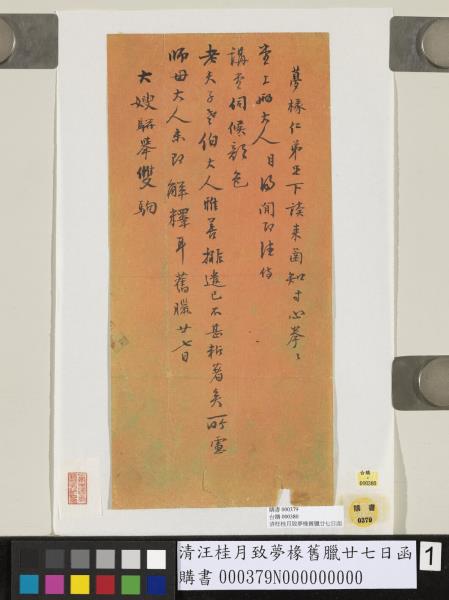 夢椽仁弟足下讀來函知寸心拳々
堂上兩大人目得聞即法侍
講堂伺候顏色
老夫子老伯大人雅善排遣已不甚折著矣所慮
師母大人未即解釋耳舊臘廿七日
大嫂駢舉雙駒
台購
000380
購書
0379
購書 000379
台購 000380
清汪桂月致夢椽舊臘廿七日函
清汪桂月致夢椽舊臘廿七日函
購書 000379N000000000
1